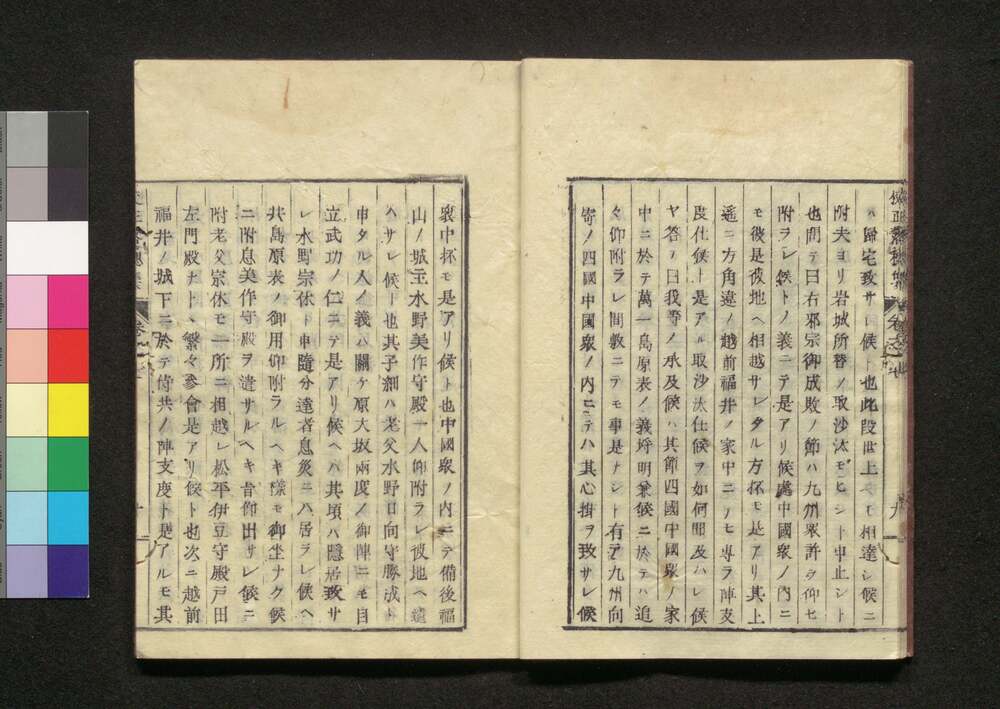 ハ歸宅致サレ候ト也此段世上ヘモ相達シ候ニ
附夫ヨリ岩城所替ノ取沙汰モヒシト中止シト
也問テ曰右邪宗御成敗ノ節ハ九州衆許ヲ仰セ
附ラレ候トノ義ニテ是アリ候處中國衆ノ内ニ
モ後是彼地ヘ相越サレタル方抔モ是アリ其上
遥ニ方角違ノ越前福井ノ家中ニノモ専ラ陣支
度仕候ト是アル取沙汰仕候ヲ如何聞及ハレ候
ヤ答テ曰我等ノ承及候ハ其節四國中國衆ノ家
中ニ於テ萬一島原表ノ義埒明兼候ニ於テハ追
々仰附ラレ間敷ニテモ事是ナシト有テ九州向
寄ノ四國中國衆ノ内ニテハ其心掛ヲ致サレ候
衆中抔モ是アリ候ト也中國衆ノ内ニテ備後福
山ノ城主水野美作守殿一人仰附ラレ彼地ヘ遠
ハサレ候ト也其子細ハ老父水野日向守勝成ト
申タル人ノ義ハ關ケ原大坂兩度ノ御陣ニモ自
立武功ノ仁ニテ是アリ候ヘハ其頃ハ隱居致サ
レ水野宗休ト申隨分達者息災ニハ居ラレ候ヘ
共島原表ノ御用仰附ラルヘキ様モ御坐ナク候
ニ附息美作守殿ヲ遣サルヘキ旨仰出サレ候ニ
附老父宗休モ一所ニ相越レ松平伊豆守殿戸田
左門殿ナトヽ繁々參會是アリ候ト也次ニ越前
福井ノ城下ニ於テ侍共ノ陣支度ト是アルモ其